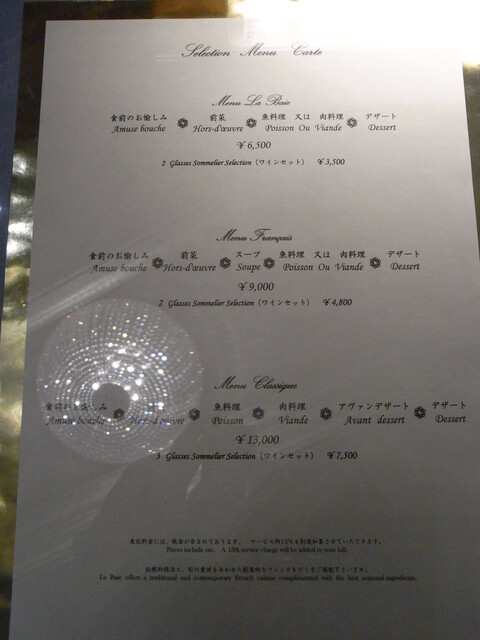 Selection Menu Carte
Menu La Baie
食前のお愉しみ 前菜 魚料理 又は 肉料理 デザート
Amuse bouche Hors-d'œuvre Poisson Ou Viande Dessert
￥6,500
2 Glasses Sommelier Selection（ワインセット） ￥3,500
Menu Français
食前のお愉しみ 前菜 スープ 魚料理 又は 肉料理 デザート
Amuse bouche Hors-d'œuvre Soupe Poisson Ou Viande Dessert
￥9,000
2 Glasses Sommelier Selection（ワインセット） ￥4,800
Menu Classique
食前のお愉しみ 魚料理 肉料理 アヴァンデザート デザート
Amuse bouche Hors-d'œuvre Poisson Viande Avant dessert Dessert
￥13,000
3 Glasses Sommelier Selection（ワインセット） ￥7,500
表記料金には、税金が含まれております。 サービス料13%を別途加算させていただきます。
Prices include tax. A 13% service charge will be added to your bill.
伝統的技法と、旬の素材をあわせた創造的なフレンチをどうぞご堪能下さいませ。
La Baie offers a traditional and contemporary French cuisine complimented with the best seasonal ingredients.